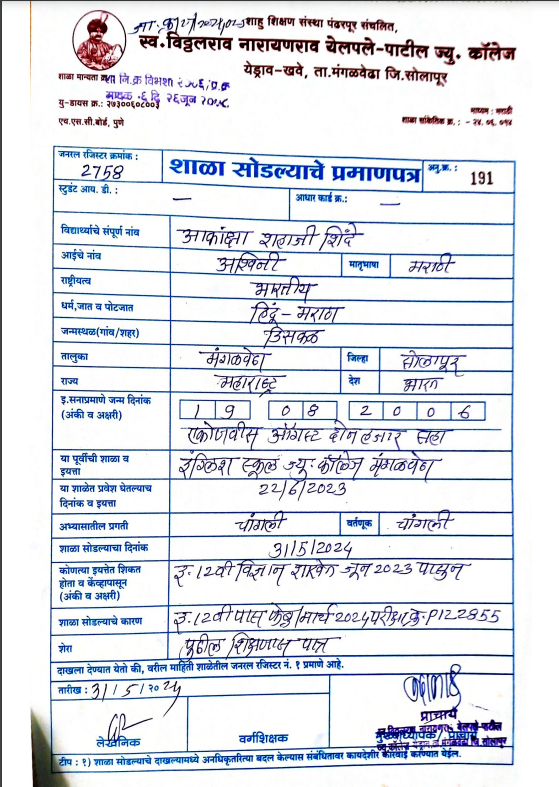 जा. क्र. /2024/ शाहु शिक्षण संस्था पंढरपूर संचलित,
स्व. विठ्ठलराव नारायणराव येलपले-पाटील ज्यु. कॉलेज
येड्राव-खवे, ता.मंगळवेढा जि.सोलापूर
शाळा मान्यता क्र.
यु-डायस क्र.: २७३००६०८००३
माध्यम : मराठी
एच.एस.सी.बोर्ड, पुणे
शाळा सांकेतिक क्र. : - २४.०६.०१५
जनरल रजिस्टर क्रमांक : 2758
शाळा सोडल्याचे प्रमाणपत्र
अनु.क्र. : 191
स्टुडंट आय. डी. : —
आधार कार्ड क्र.: —
विद्यार्थ्याचे संपूर्ण नांव आकांक्षा शहाजी शिंदे
आईचे नांव अश्विनी मातृभाषा मराठी
राष्ट्रीयत्व भारतीय
धर्म,जात व पोटजात हिंदू - मराठा
जन्मस्थळ(गांव/शहर) डिसकळ
तालुका मंगळवेढा जिल्हा सोलापूर
राज्य महाराष्ट्र देश भारत
इ.सनाप्रमाणे जन्म दिनांक (अंकी व अक्षरी) 1 9 0 8 2 0 0 6
एकोणवीस ऑगस्ट दोन हजार सहा
या पूर्वीची शाळा व इयत्ता इंग्लिश स्कूल ज्यु. कॉलेज मंगळवेढा
या शाळेत प्रवेश घेतल्याचा दिनांक व इयत्ता 22/6/2023
अभ्यासातील प्रगती चांगली वर्तणूक चांगली
शाळा सोडल्याचा दिनांक 31/5/2024
कोणत्या इयत्तेत शिकत होता व केंव्हापासून (अंकी व अक्षरी) इ. 12वी विज्ञान शाखेत जून 2023 पासुन
शाळा सोडल्याचे कारण इ. 12वी पास फेब्रु/मार्च 2024 परीक्षा क्र. P122855
शेरा पुढील शिक्षणास पात्र
दाखला देण्यात येतो की, वरील माहिती शाळेतील जनरल रजिस्टर नं. १ प्रमाणे आहे.
तारीख : 31/5/२०24
लेखनिक
वर्गशिक्षक
प्राचार्य
मुख्याध्यापक / प्राचार्य
टीप : १) शाळा सोडल्याचे दाखल्यामध्ये अनधिकृतरित्या बदल केल्यास संबंधितावर कायदेशीर कारवाई करण्यात येईल.